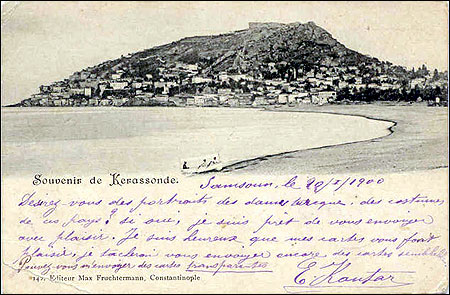 Souvenir de Kerassonde.
Samsoun, le 29/I/1900
Desirez-vous des portraits des dames et des costumes
de ces pays? si oui, je suis prêt de vous envoyer
avec plaisir. Je suis heureux que mes cartes vous font
plaisir, je tacherai vous envoyer encore des cartes semblables
Pouvez-vous m'envoyer des cartes transparantes
147. Editeur Max Fruchtermann, Constantinople